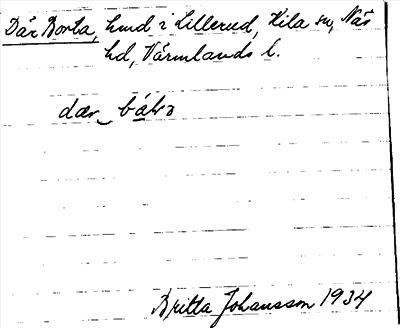 Där Borta, hmd i Lillerud, Kila sn, Näs
hd, Värmlands l.
dær‿
Britta Johansson 1934